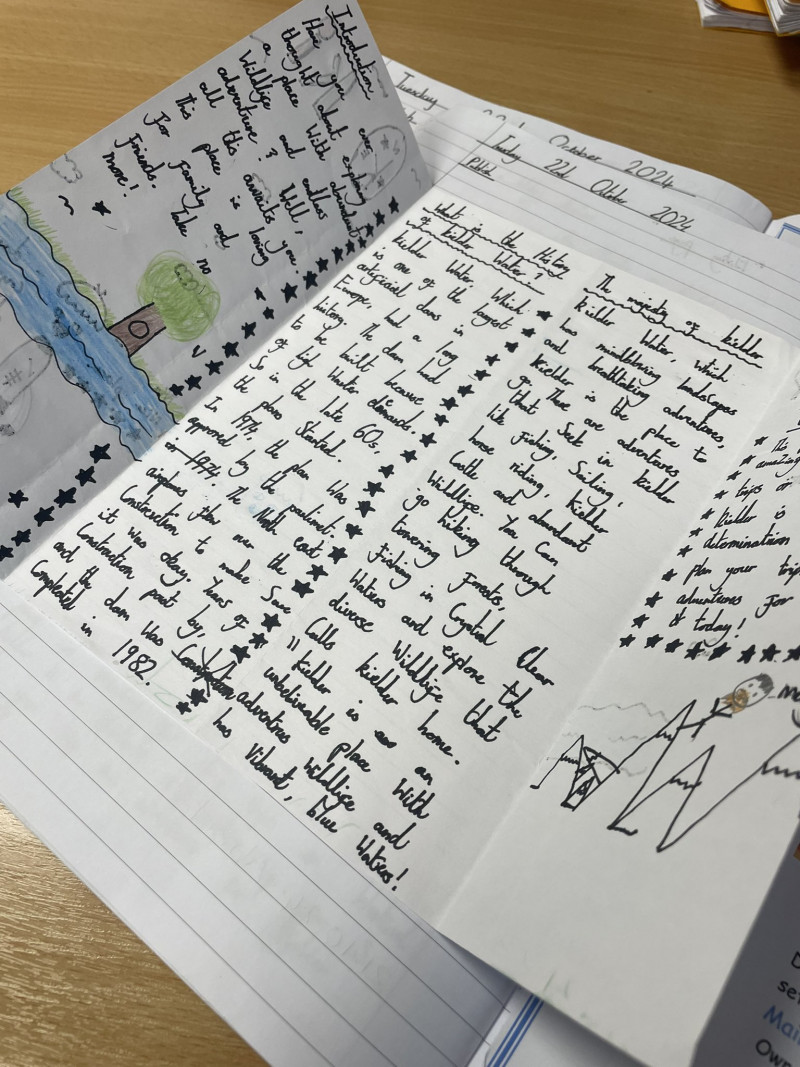 Introduction
Have you ever
thought about exploring
a place with abundant
Wildlife and endless
adventure? Well,
all this awaits you.
This place is loving
For Family and
Friends. Take no
more!
Tuesday 22nd October 2024
Tuesday 22nd October 2024
What is the History
of Kielder Water?
Kielder Water, Which
is one of the largest
artificial dams in
Europe, had a long
history. The dam had
to be built because
of high Water demands.
So in the late 60s,
the plans started.
In 1974, the plan was
approved by the parliment.
in 1974. The North east
airplanes flew over the
Construction to make Sure
it was okay. Years of
Construction past by,
and the dam was
Completed in 1982.
The majesty of kielder
Kielder Water, which
has mindblowing landscapes
and breathtaking adventures,
Kielder is the place to
go. There are adventures
that Seek in kielder
like Fishing, Sailing,
horse riding, Kielder
Castle and abundant
Wildlife. You Can
go hiking through
towering Forests,
Fishing in Crystial Clear
Waters and explore the
diverse Wildlife that
Calls kielder home.
"Kielder is an
unbelivable place With
adventures Wildlife and
has Vibrant, blue Waters!
This
amazing
trips or
Kielder is
determination
plan your trip
adventures For
today!
me
D
se
Mai
Own